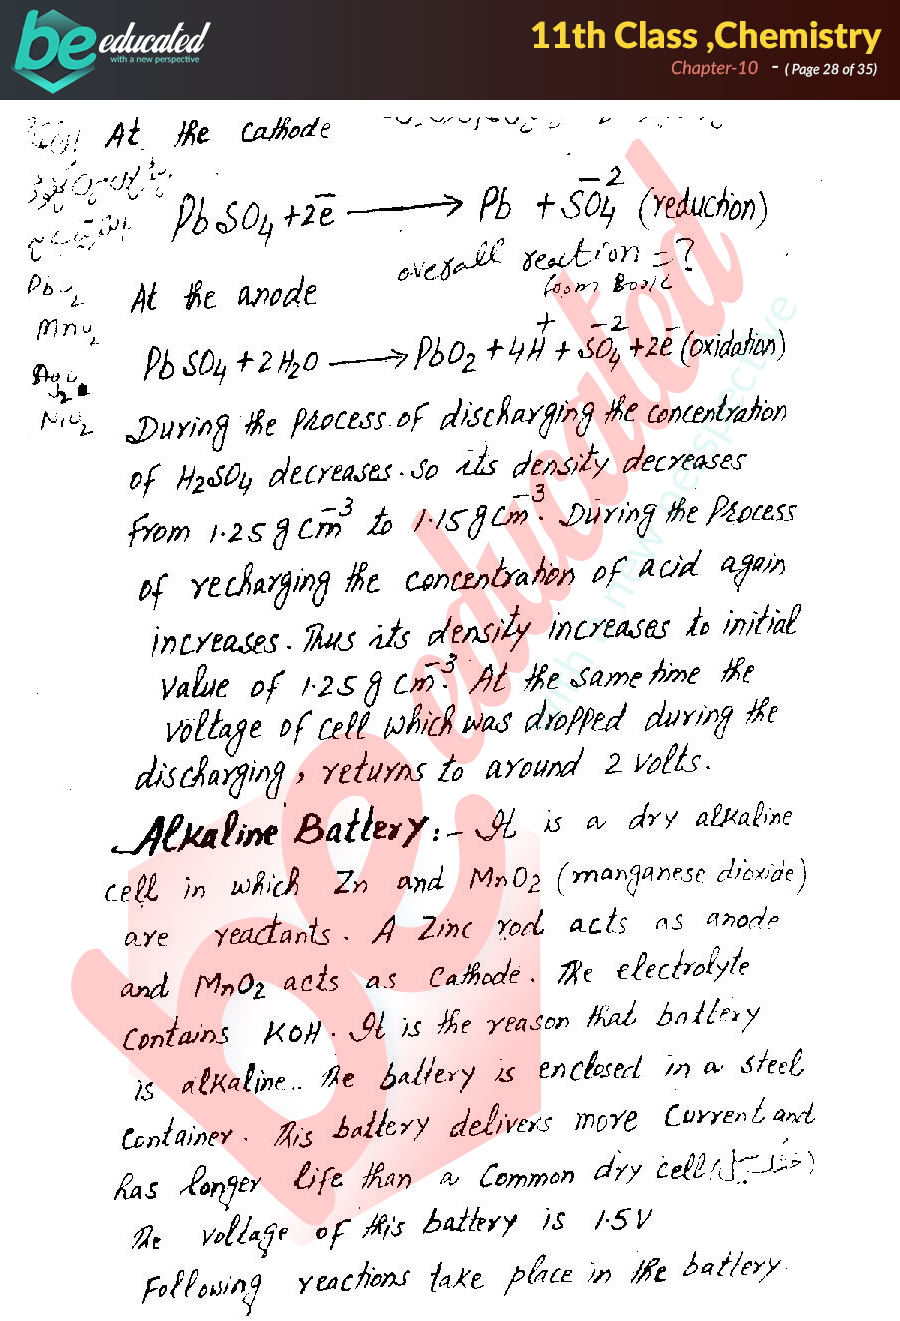 be educated
with a new perspective
11th Class ,Chemistry
Chapter-10 - ( Page 28 of 35)
At the cathode
PbSO4+2e̅ ⟶ Pb + SO4⁻² (reduction)
overall reaction = ?
from Book
At the anode
PbSO4 + 2H2O ⟶ PbO2 + 4H⁺ + SO4⁻² + 2e̅ (oxidation)
PbO2
MnO2
NiO2
During the process of discharging the concentration
of H2SO4 decreases. so its density decreases
from 1.25 g cm⁻³ to 1.15 g cm⁻³. During the process
of recharging the concentration of acid again
increases. Thus its density increases to initial
value of 1.25 g cm⁻³. At the same time the
voltage of cell which was dropped during the
discharging, returns to around 2 volts.
Alkaline Battery:- It is a dry alkaline
cell in which Zn and MnO2 (manganese dioxide)
are reactants. A Zinc rod acts as anode
and MnO2 acts as cathode. The electrolyte
contains KOH. It is the reason that battery
is alkaline.. The battery is enclosed in a steel
container. This battery delivers more current and
has longer life than a common dry cell (خشک سیل)
The voltage of this battery is 1.5V
Following reactions take place in the battery.
be educated